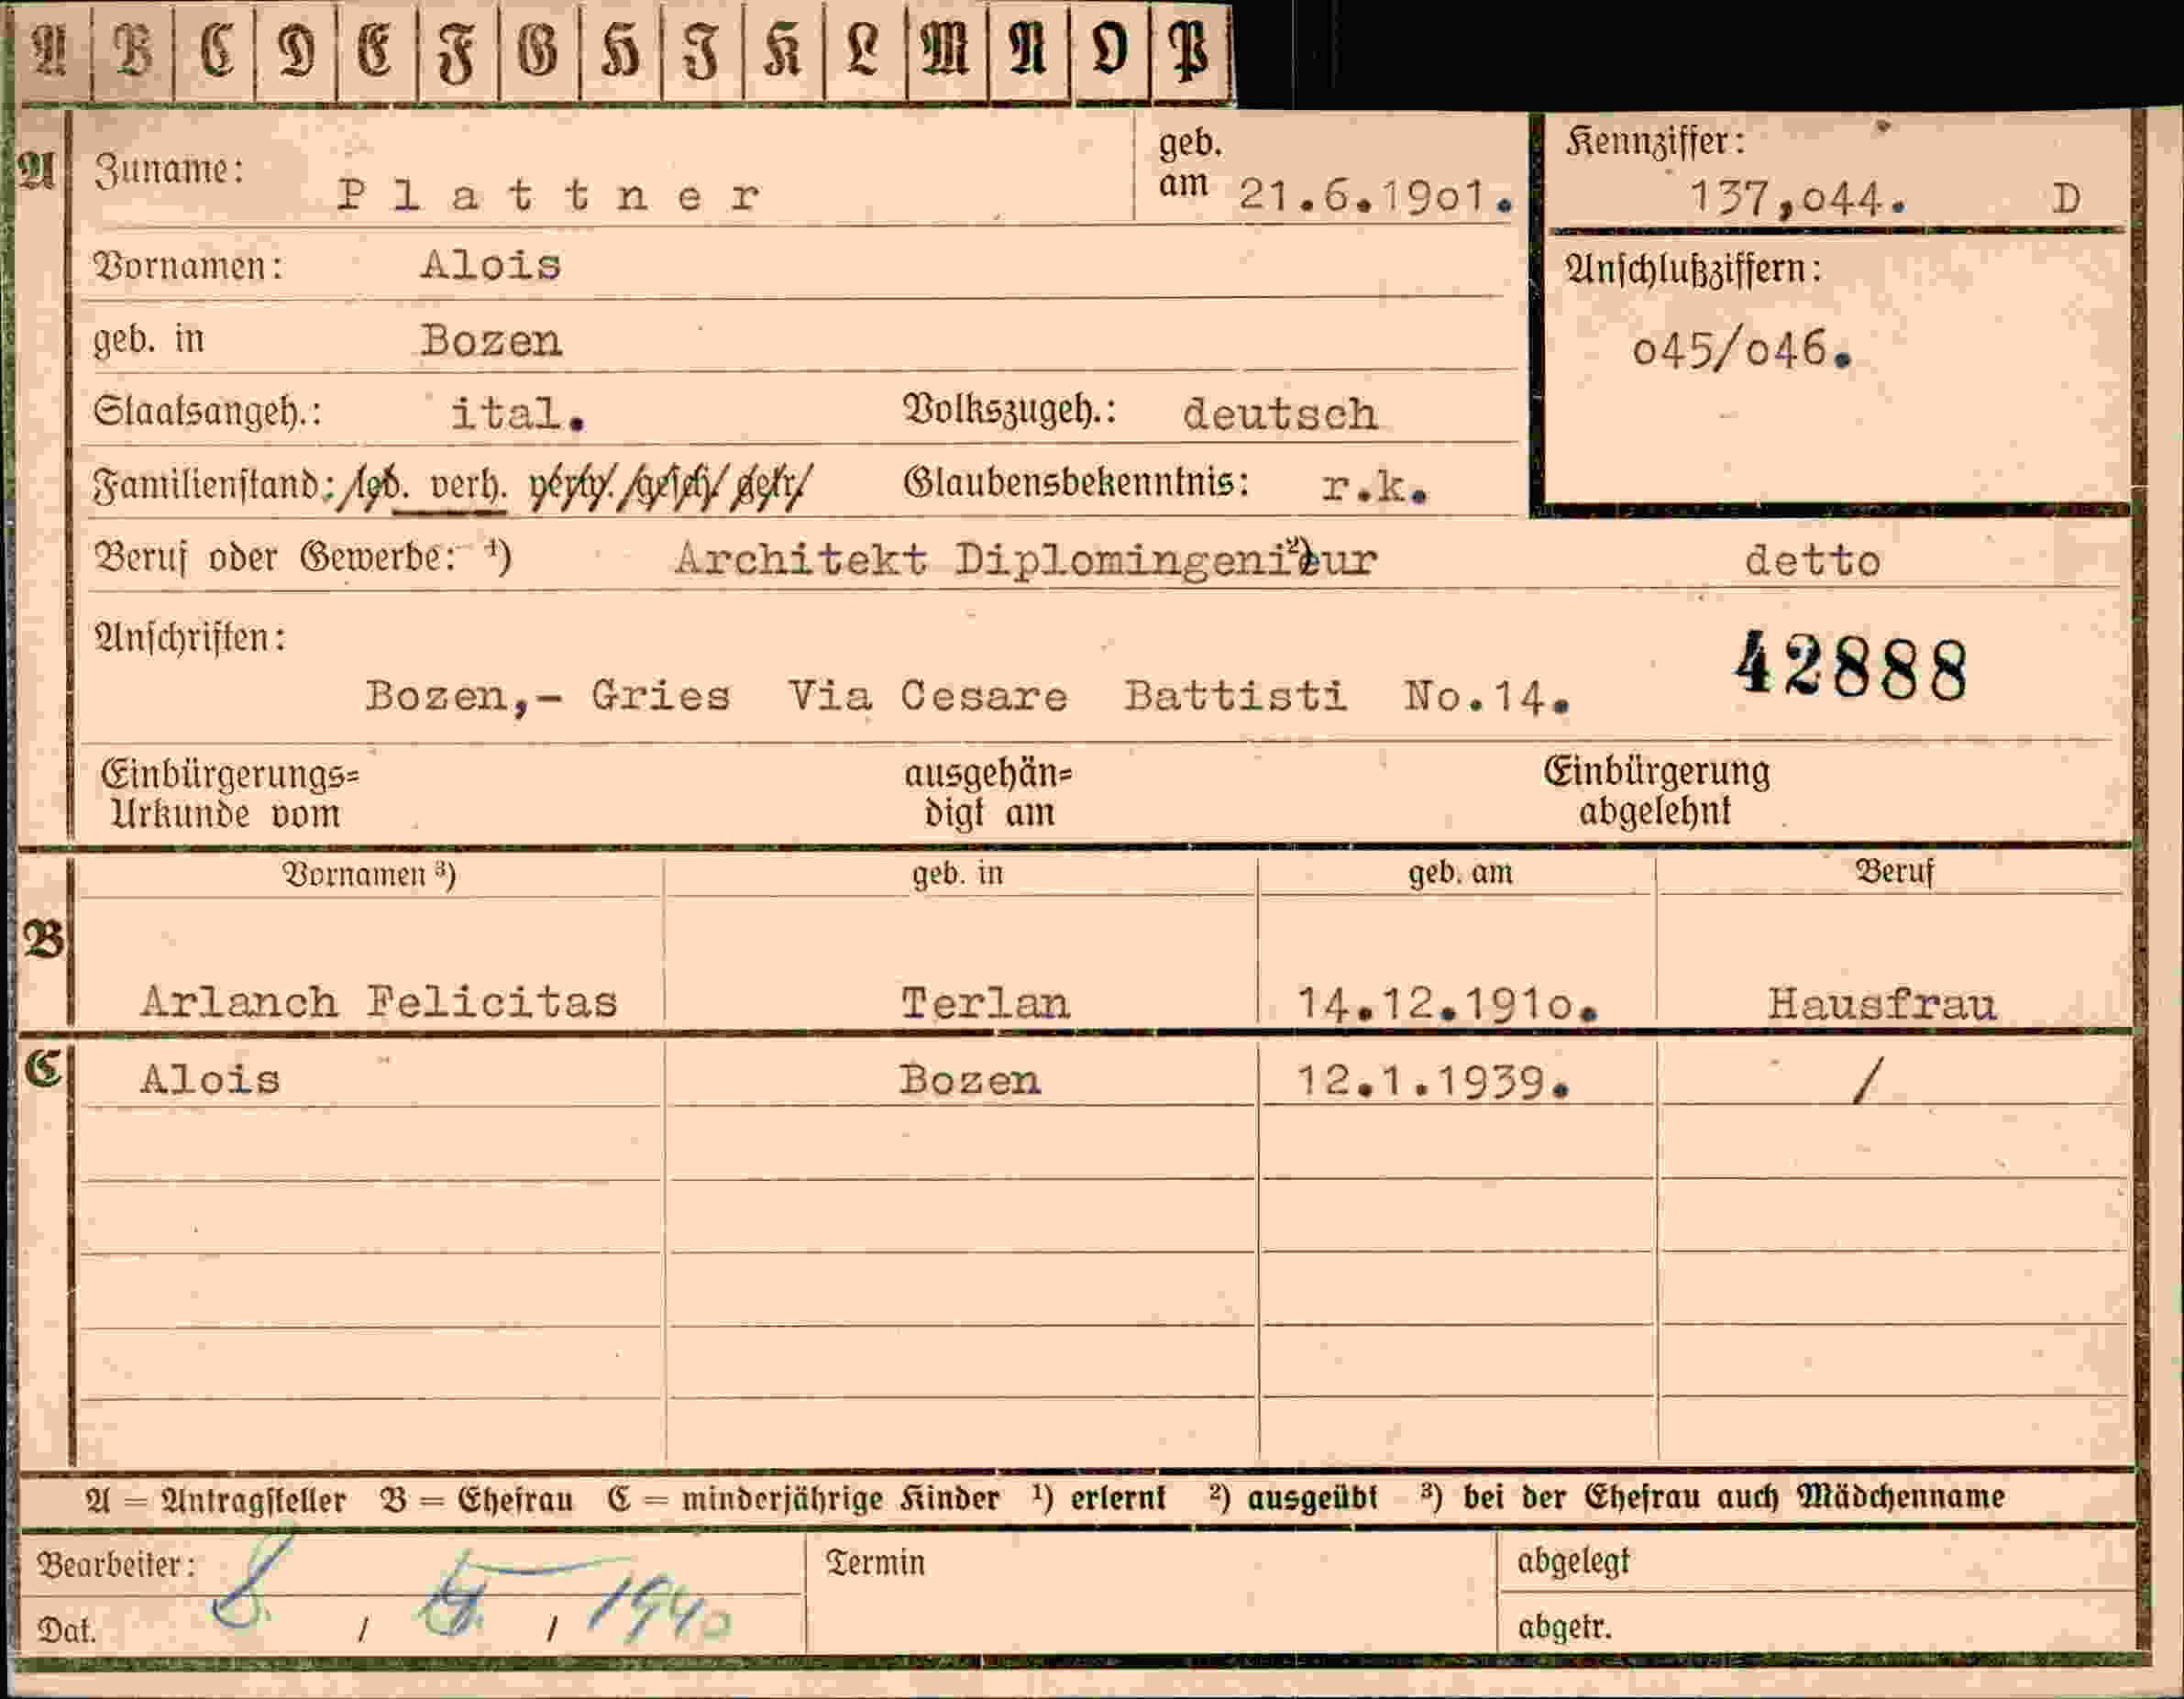 A B C D E F G H I K L M N O P
A Zuname: Plattner geb. am 21.6.19o1. Kennziffer: 137,o44. D
Vornamen: Alois Anschlußziffern:
geb. in Bozen o45/o46.
Staatsangeh.: ital. Volkszugeh.: deutsch
Familienstand: led. verh. verw. gesch. getr. Glaubensbekenntnis: r.k.
Beruf oder Gewerbe: ¹) Architekt Diplomingenieur ²) detto
Anschriften: 42888
Bozen,- Gries Via Cesare Battisti No.14.
Einbürgerungs= ausgehän= Einbürgerung
Urkunde vom digt am abgelehnt
Vornamen ³) geb. in geb. am Beruf
B
Arlanch Felicitas Terlan 14.12.191o. Hausfrau
C Alois Bozen 12.1.1939. /
A = Antragsteller B = Ehefrau C = minderjährige Kinder ¹) erlernt ²) ausgeübt ³) bei der Ehefrau auch Mädchenname
Bearbeiter: Termin abgelegt
Dat. 8. / / 1940 abgetr.